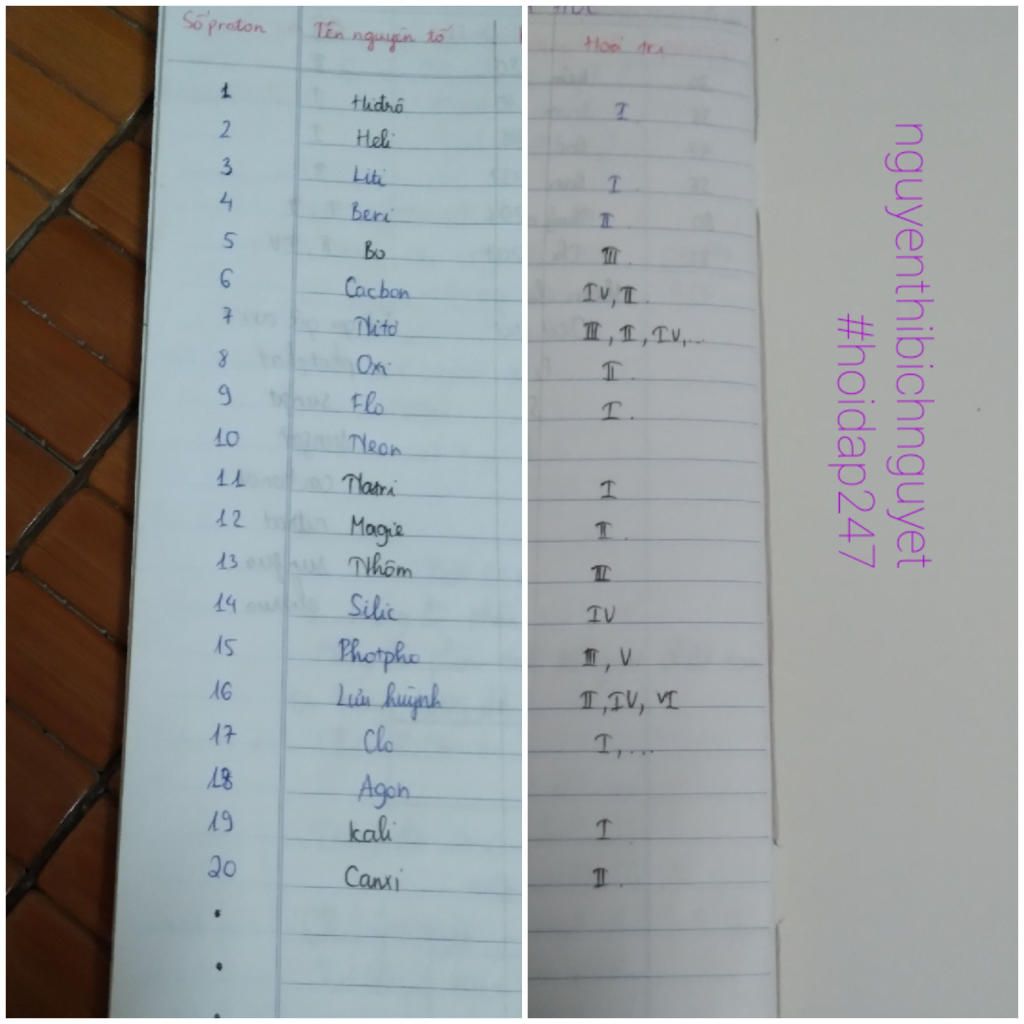 Số proton Tên nguyên tố Hoá trị
1 Hiđrô I
2 Heli
3 Liti I
4 Beri II
5 Bo III
6 Cacbon IV, II
7 Nitơ III, II, IV,...
8 Oxi II
9 Flo I
10 Neon
11 Natri I
12 Magie II
13 Nhôm III
14 Silic IV
15 Photpho III, V
16 Lưu huỳnh II, IV, VI
17 Clo I,...
18 Agon
19 Kali I
20 Canxi II
nguyenthibichnguyet
#hoidap247